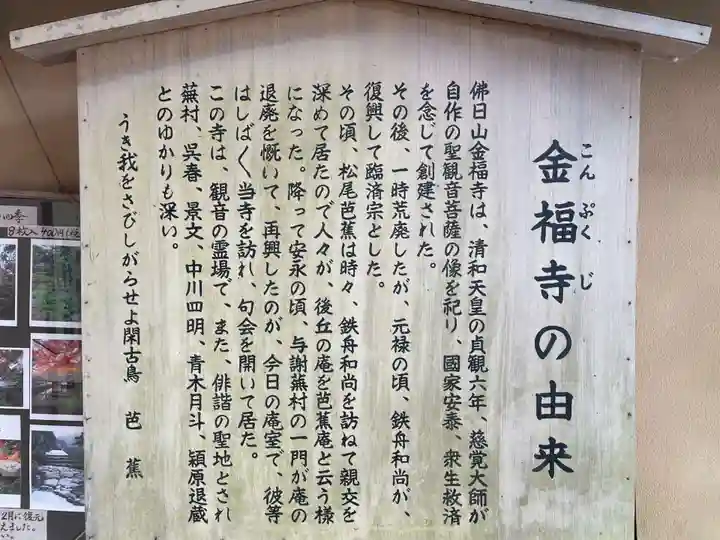 金福寺の由来
こん ぷく じ
佛日山金福寺は、清和天皇の貞観六年、慈覚大師が
自作の聖観音菩薩の像を祀り、國家安泰、衆生救済
を念じて創建された。
その後、一時荒廃したが、元禄の頃、鉄舟和尚が、
復興して臨済宗とした。
その頃、松尾芭蕉は時々、鉄舟和尚を訪ねて親交を
深めて居たので人々が、後丘の庵を芭蕉庵と云う様
になった。降って安永の頃、与謝蕪村の一門が庵の
退廃を慨いて、再興したのが、今日の庵室で、彼等
はしば〱当寺を訪れ、句会を開いて居た。
この寺は、観音の霊場で、また、俳諧の聖地とされ
蕪村、呉春、景文、中川四明、青木月斗、穎原退蔵
とのゆかりも深い。
うき我をさびしがらせよ閑古鳥 芭蕉
四季
8枚入 400円
2月に復元
えました。
い。